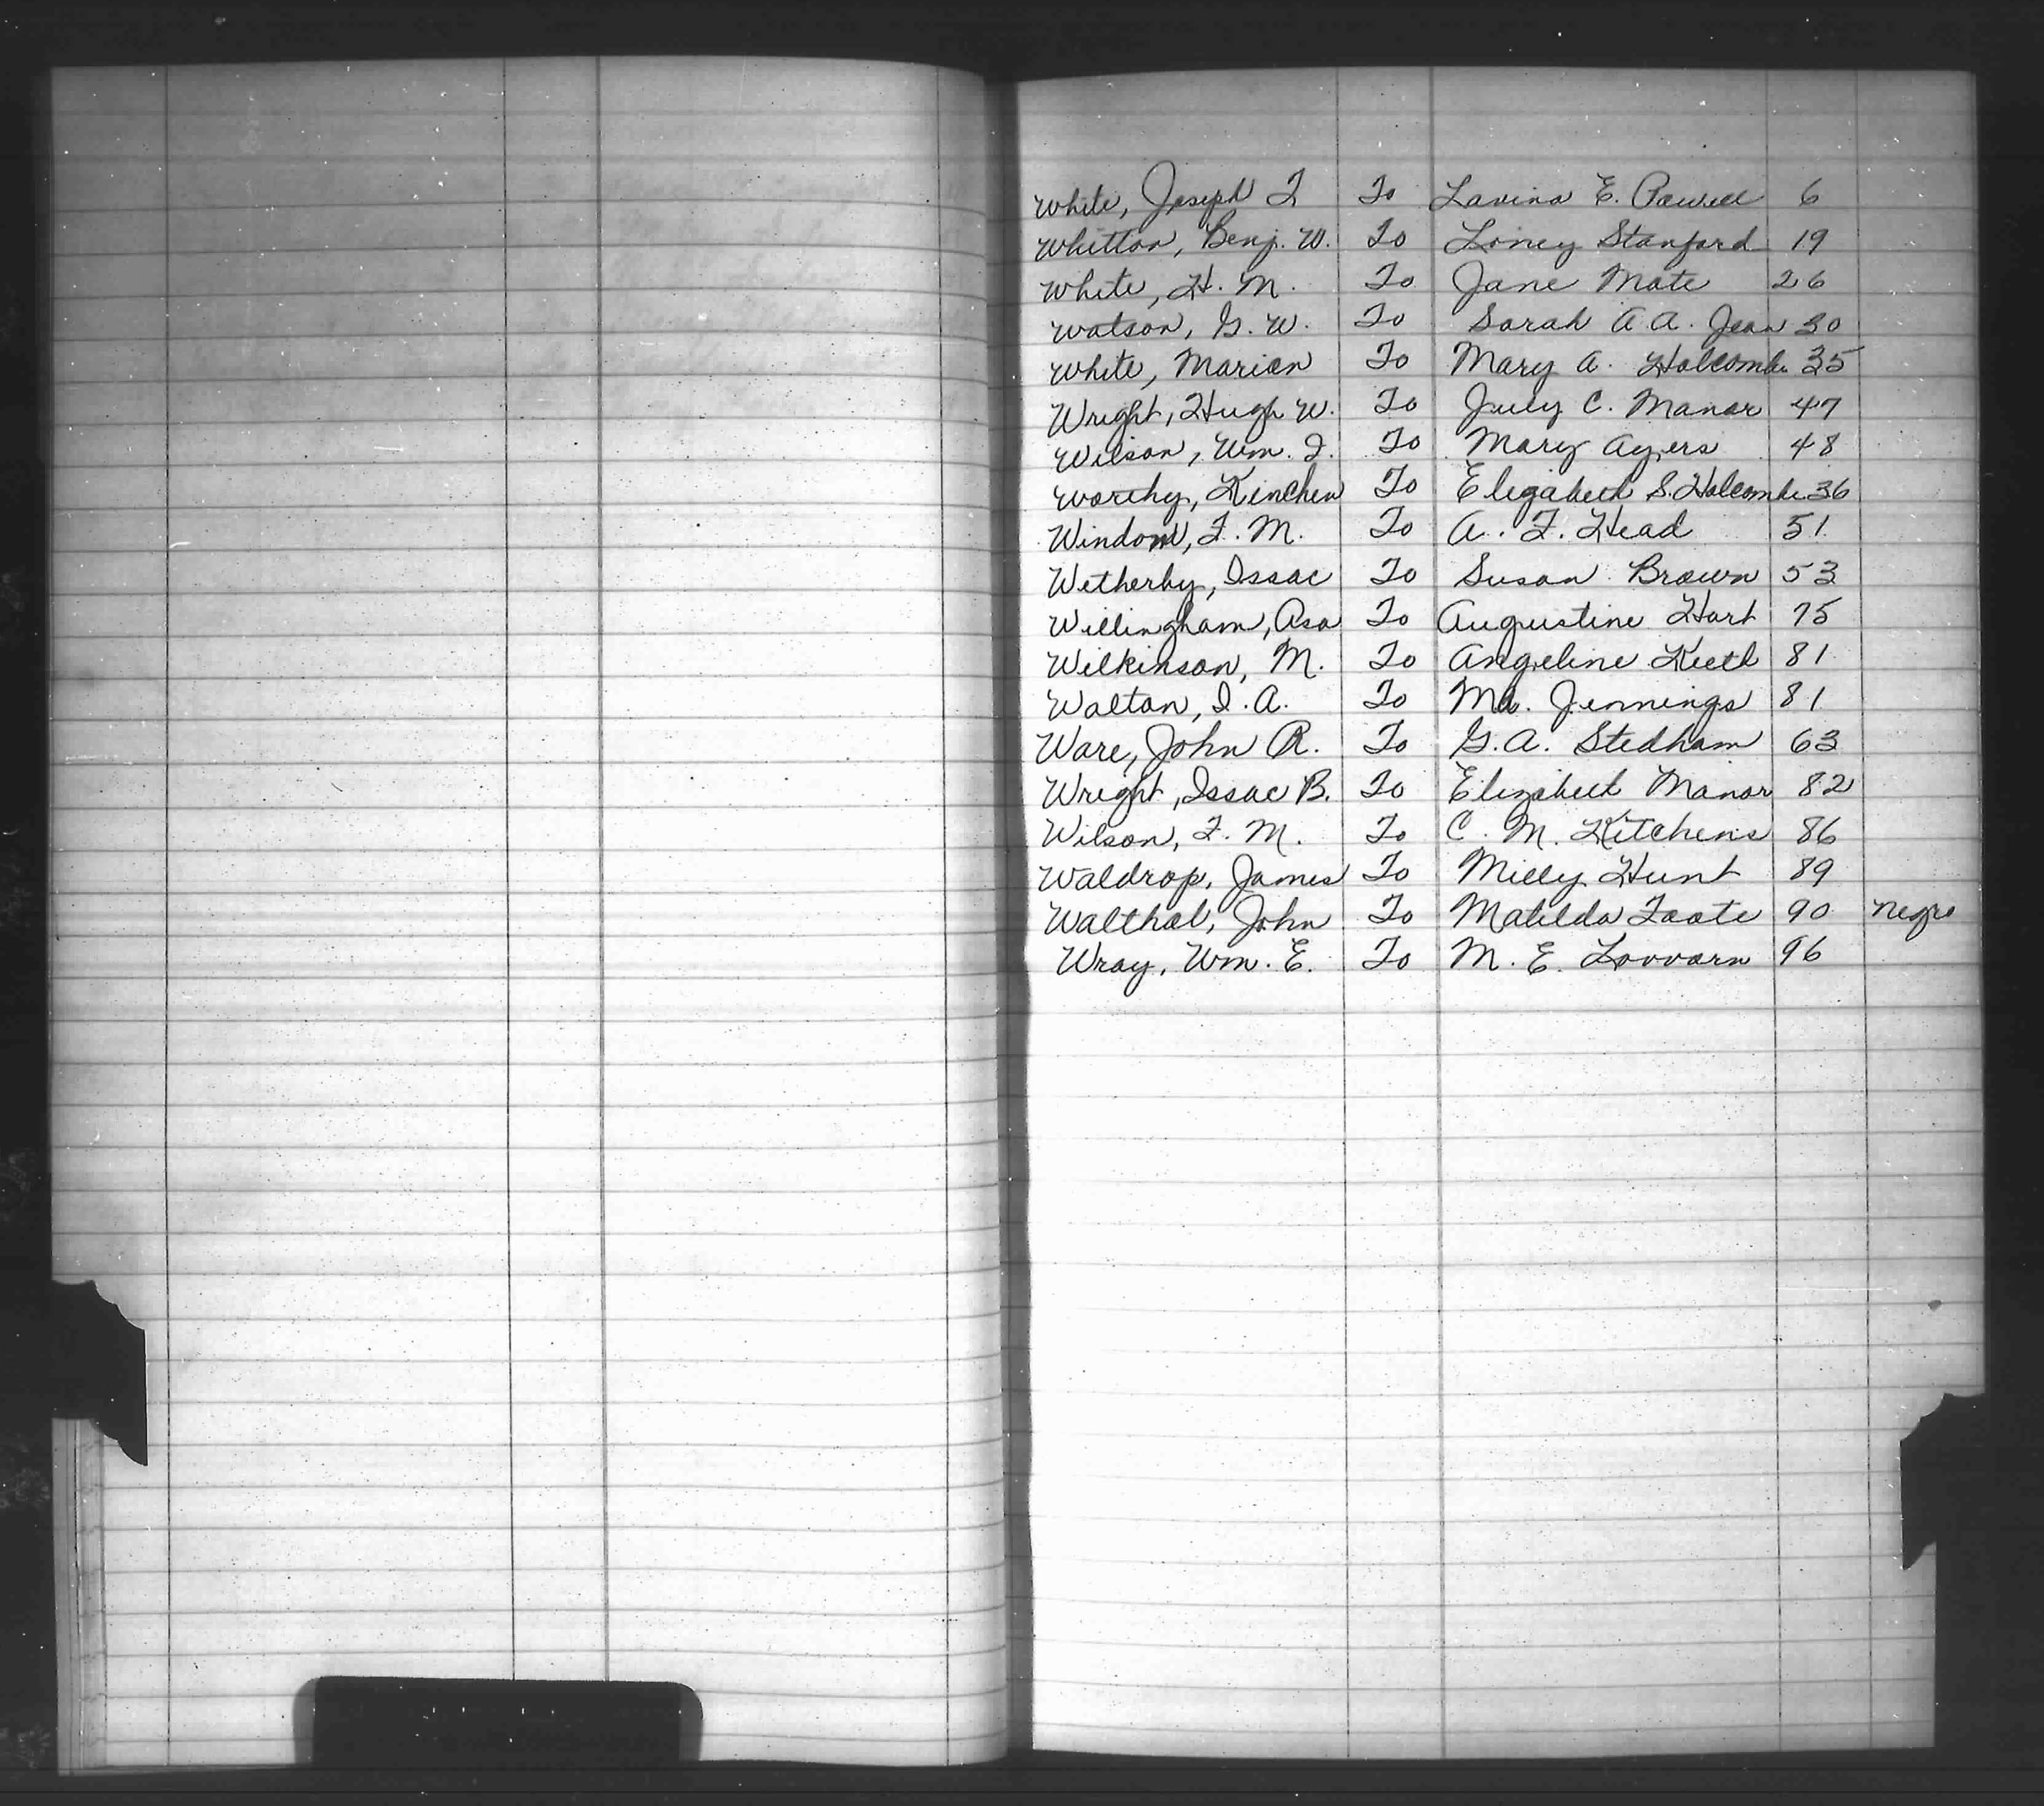 White, Joseph T To Lavina E. Powell 6
Whitton, Benj. W. To Loney Stanford 19
White, H. M. To Jane Mate 26
Watson, G. W. To Sarah A. A. Jean 30
White, Marion To Mary A. Holcombe 35
Wright, Hugh W. To July C. Manor 47
Wilson, Wm. I. To Mary Ayers 48
Worthy, Kinchen To Elizabeth S. Holcombe 36
Windom, F. M. To A. F. Head 51
Wetherby, Issac To Susan Brown 53
Willingham, Asa To Augustine Hart 75
Wilkinson, M. To Angeline Keeth 81
Walton, I. A. To Ma. Jennings 81
Ware, John R. To G. A. Stedham 63
Wright, Issac B. To Elizabeth Manor 82
Wilson, F. M. To C. M. Kitchens 86
Waldrop, James To Milly Hunt 89
Walthal, John To Matilda Foote 90 Negro
Wray, Wm. E. To M. E. Lovvorn 96